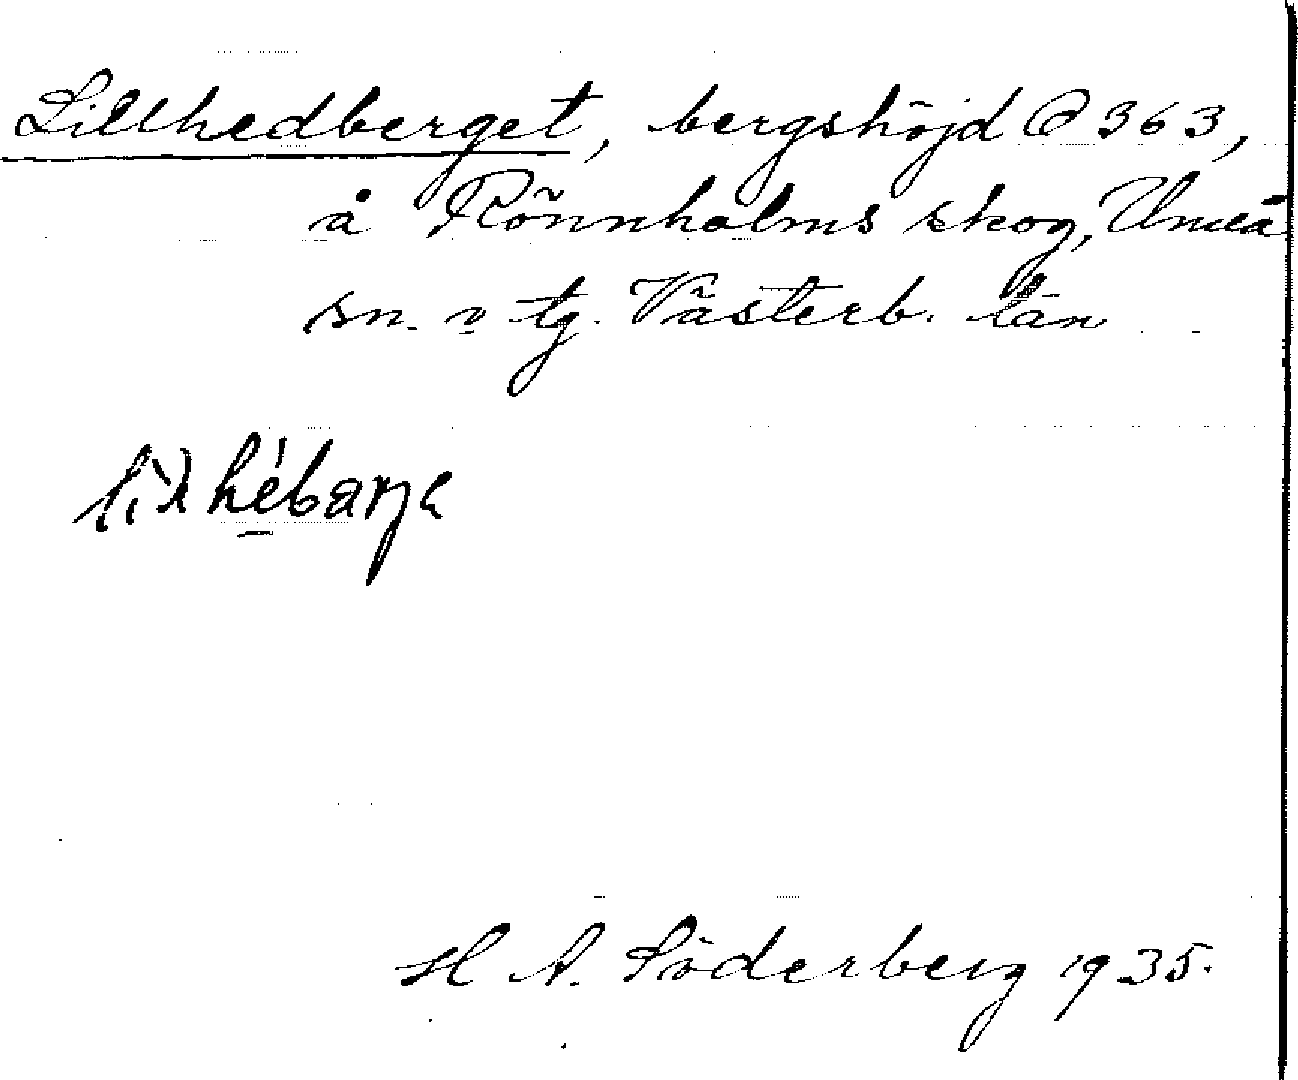 Lillhedberget, bergshöjd @ 363,
å Rönnholms skog, Umeå
sn. o tg. Västerb. län
H A. Söderberg 1935.